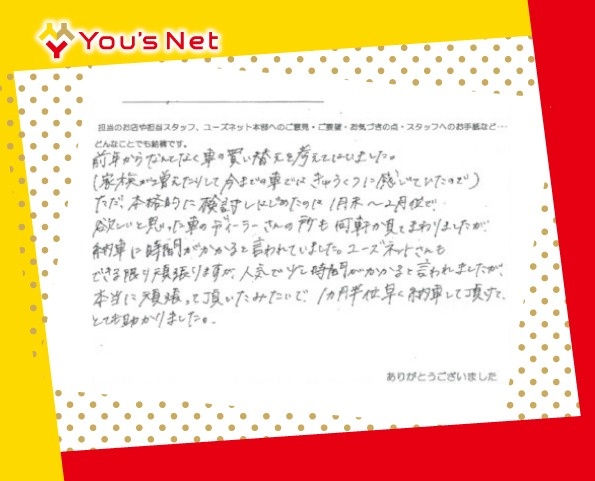 You's Net
担当のお店や担当スタッフ、ユーズネット本部へのご意見・ご要望・お気づきの点・スタッフへのお手紙など…
どんなことでも結構です。
前年からなんとなく車の買い替えを考えてはいました。
(家族が増えたりして今までの車ではきゅうくつに感じていたので)
ただ、本格的に検討しはじめたのは1月末〜2月位で
欲しいと思った車のディーラーさんの所も何軒か見てまわりましたが
納車に時間がかかると言われていました。ユーズネットさんも
できる限り頑張りますが、人気で少し時間がかかると言われましたが、
本当に頑張って頂いたみたいで、1カ月半位早く納車して頂けて、
とても助かりました。
ありがとうございました